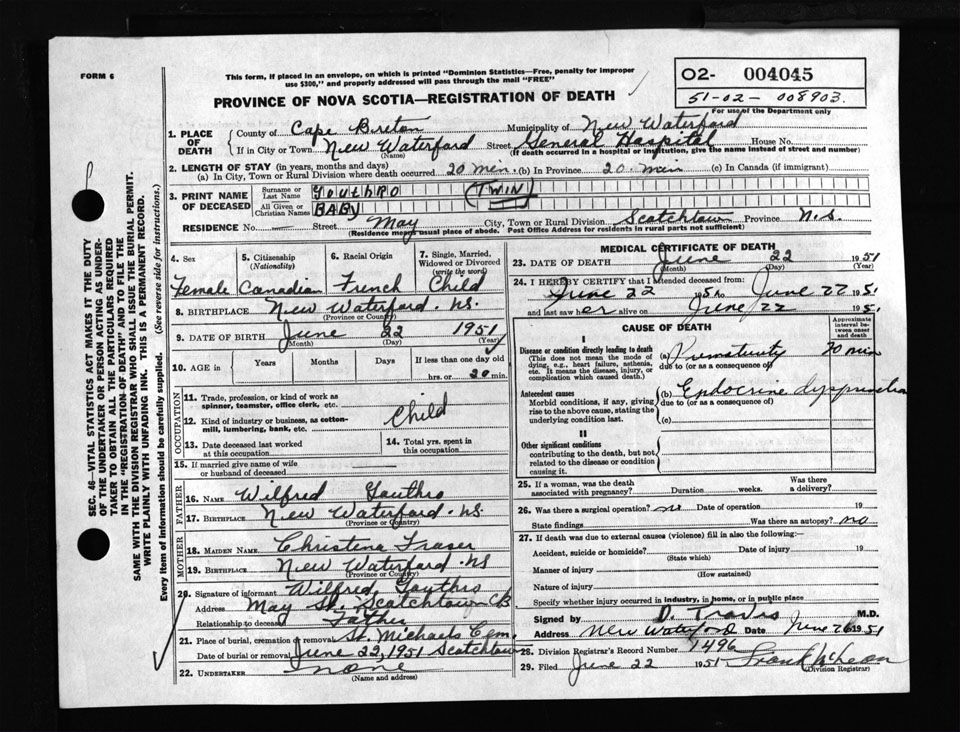 FORM 6
This form, if placed in an envelope, on which is printed "Dominion Statistics—Free, penalty for improper
use $300," and properly addressed will pass through the mail "FREE"
O2- 004045
51-02-008903.
For use of the Department only
PROVINCE OF NOVA SCOTIA—REGISTRATION OF DEATH
SEC. 46—VITAL STATISTICS ACT MAKES IT THE DUTY
OF THE UNDERTAKER OR PERSON ACTING AS UNDER-
TAKER TO OBTAIN ALL THE PARTICULARS REQUIRED
IN THE "REGISTRATION OF DEATH" AND TO FILE THE
SAME WITH THE DIVISION REGISTRAR WHO SHALL ISSUE THE BURIAL PERMIT.
WRITE PLAINLY WITH UNFADING INK. THIS IS A PERMANENT RECORD.
Every item of Information should be carefully supplied. (See reverse side for instructions.)
1. PLACE OF DEATH { County of Cape Breton Municipality of New Waterford
If in City or Town New Waterford Street General Hospital House No.
(Name) (If death occurred in a hospital or institution, give the name instead of street and number)
2. LENGTH OF STAY (in years, months and days)
(a) In City, Town or Rural Division where death occurred 20 min. (b) In Province 20 min (c) In Canada (if immigrant)
3. PRINT NAME OF DECEASED { Surname or Last Name YOUTHRO (TWIN)
All Given or Christian Names BABY
RESIDENCE No. — Street May City, Town or Rural Division Scotchtown Province N.S.
(Residence means usual place of abode. Post Office Address for residents in rural parts not sufficient)
4. Sex Female
5. Citizenship (Nationality) Canadian
6. Racial Origin French
7. Single, Married, Widowed or Divorced (write the word) Child
8. BIRTHPLACE New Waterford. NS.
(Province or Country)
9. DATE OF BIRTH June 22 1951
(Month) (Day) (Year)
10. AGE in { Years Months Days If less than one day old
hrs. or 20 min.
OCCUPATION
11. Trade, profession, or kind of work as
spinner, teamster, office clerk, etc.
Child
12. Kind of industry or business, as cotton-
mill, lumbering, bank, etc.
13. Date deceased last worked
at this occupation
14. Total yrs. spent in
this occupation
15. If married give name of wife
or husband of deceased
FATHER
16. NAME Wilfred Gouthro
17. BIRTHPLACE New Waterford. NS.
(Province or Country)
MOTHER
18. MAIDEN NAME Christena Fraser
19. BIRTHPLACE New Waterford. NS
(Province or Country)
20. Signature of informant Wilfred Gouthro
Address May St. Scotchtown CB
Relationship to deceased Father
21. Place of burial, cremation or removal St. Michaels Cem.
Date of burial or removal June 22, 1951 Scotchtown
22. UNDERTAKER none
(Name and address)
MEDICAL CERTIFICATE OF DEATH
23. DATE OF DEATH June 22 1951
(Month) (Day) (Year)
24. I HEREBY CERTIFY that I attended deceased from:
June 22 1951 to June 22 1951
and last saw her alive on June 22 1951
CAUSE OF DEATH
Approximate
interval be-
tween onset
and death
I
Disease or condition directly leading to death
(This does not mean the mode of
dying, e.g., heart failure, asthenia,
etc. It means the disease, injury, or
complication which caused death.)
(a) Prematurity 20 min
due to (or as a consequence of)
Antecedent causes
Morbid conditions, if any, giving
rise to the above cause, stating the
underlying condition last.
(b) Endocrine dysfunction
due to (or as a consequence of)
(c)
II
Other significant conditions
contributing to the death, but not
related to the disease or condition
causing it.
25. If a woman, was the death
associated with pregnancy? Duration weeks. Was there
a delivery?
26. Was there a surgical operation? no Date of operation 19
State findings Was there an autopsy? no
27. If death was due to external causes (violence) fill in also the following:—
Accident, suicide or homicide? Date of injury 19
(State which)
Manner of injury
(How sustained)
Nature of injury
Specify whether injury occurred in industry, in home, or in public place
Signed by D. Travis M.D.
Address New Waterford Date June 26 1951
28. Division Registrar's Record Number 1496
29. Filed June 22 1951 Frank McLean
(Division Registrar)